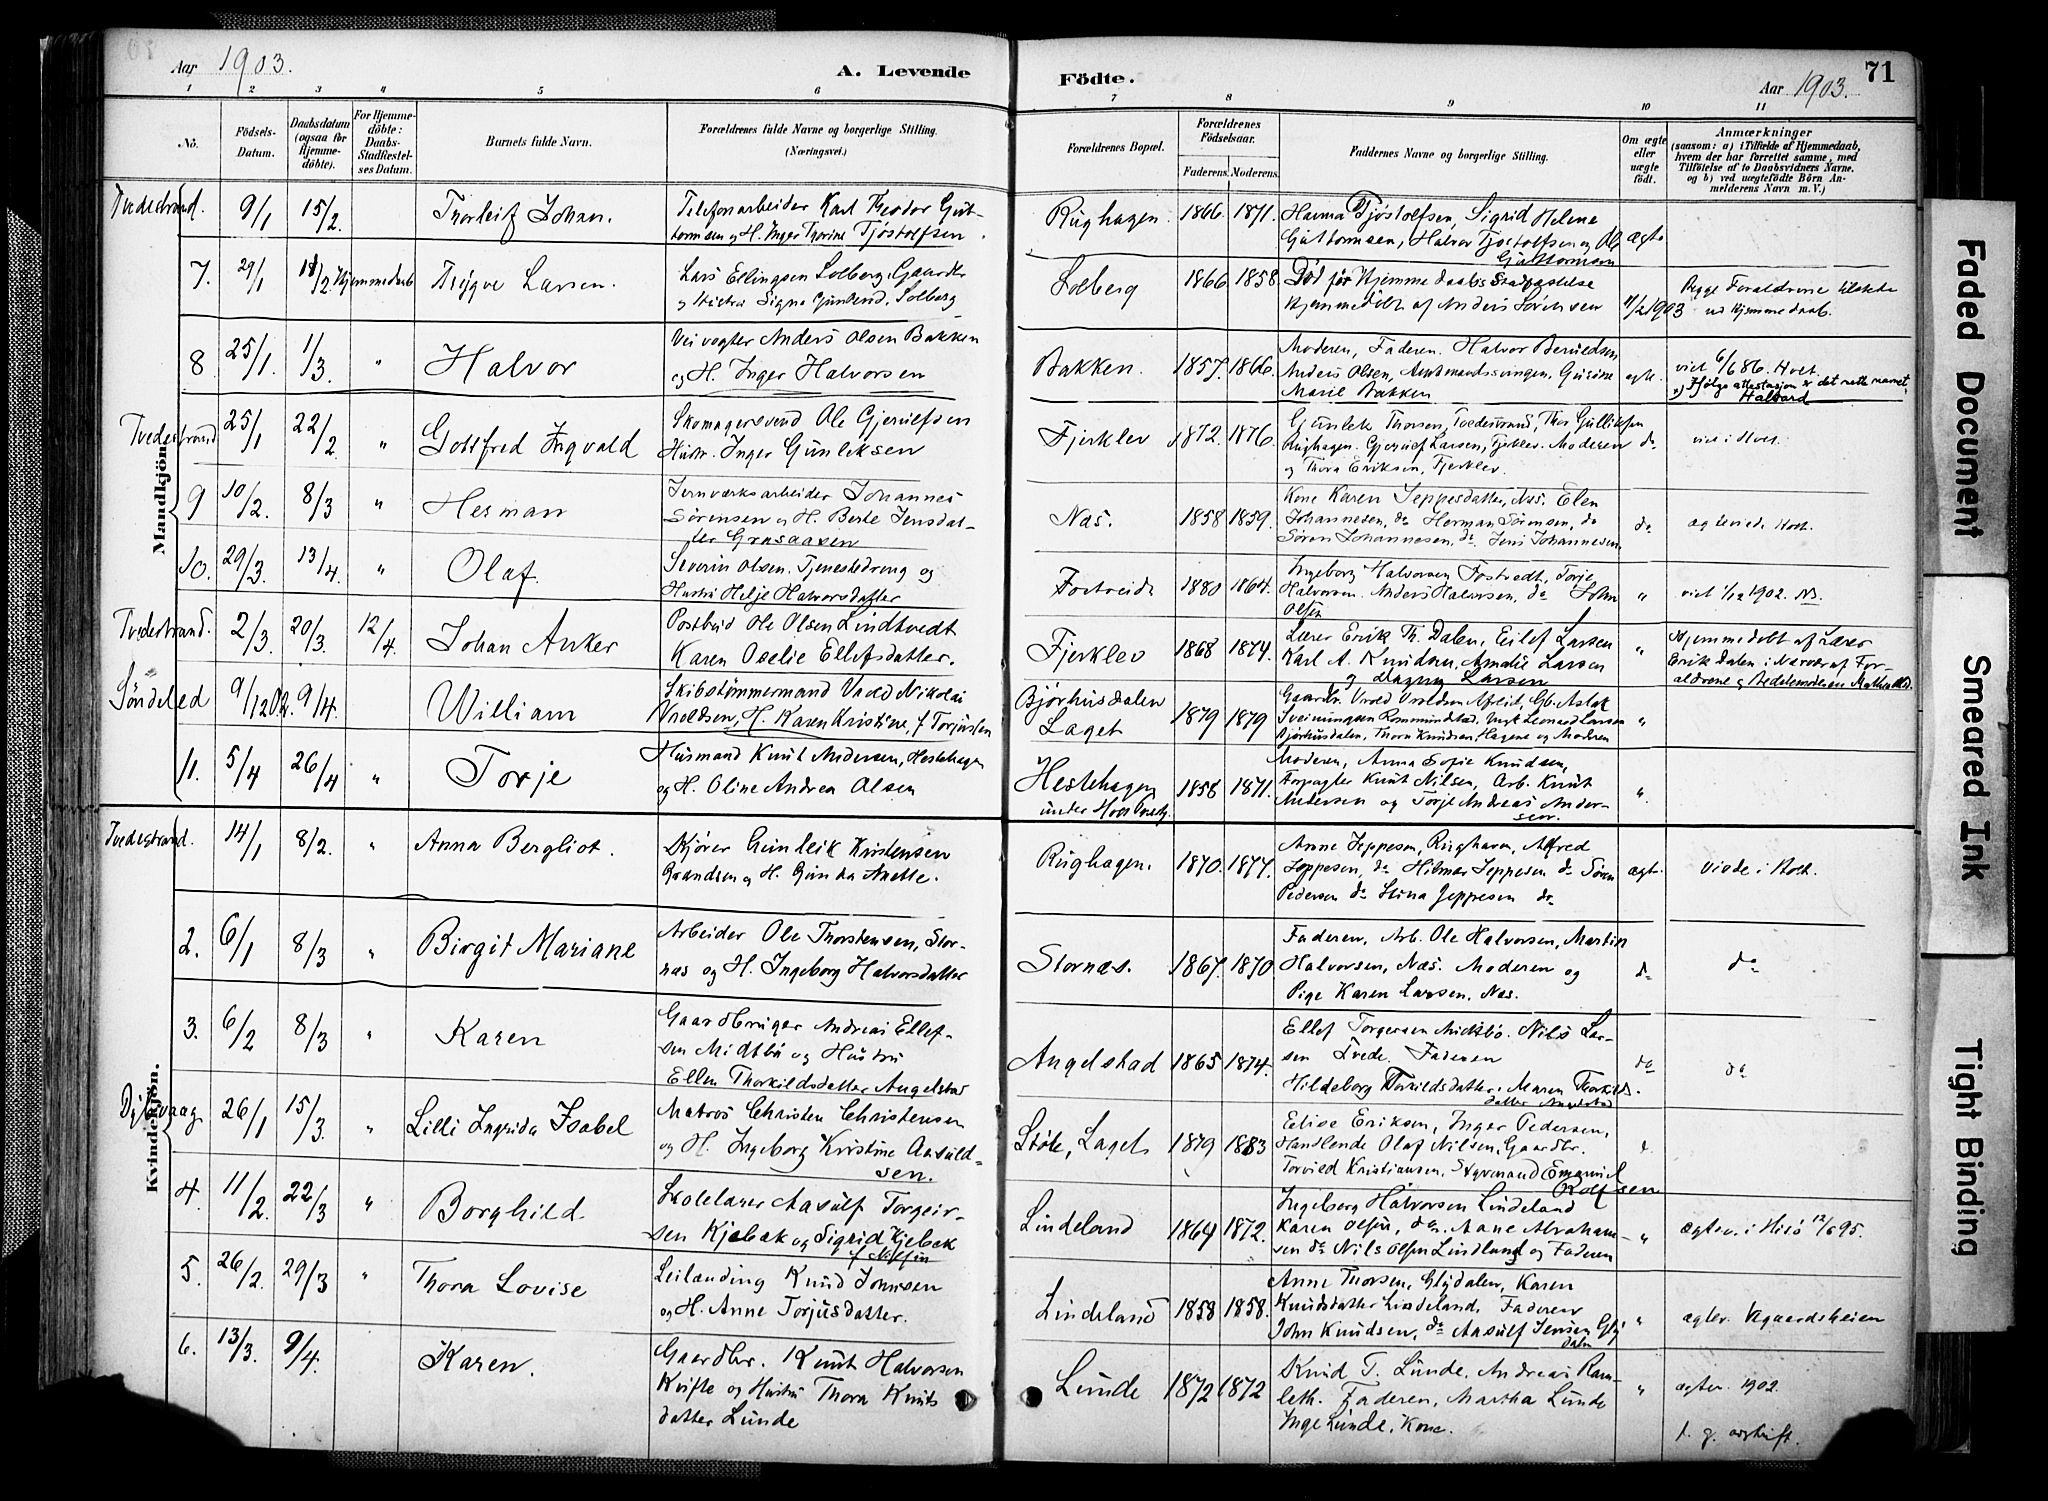 Aar 1903.
A. Levende
Födte.
71
Aar 1903.
1 2 3 4 5 6 7 8 9 10 11
No.
Födsels-Datum.
Daabsdatum (ogsaa for Hjemme-döbte).
For Hjemme-döbte: Daabs-Stadfæstel-ses Datum.
Barnets fulde Navn.
Forældrenes fulde Navne og borgerlige Stilling. (Næringsvei.)
Forældrenes Bopæl.
Forældrenes Födselsaar.
Faderens. Moderens.
Faddernes Navne og borgerlige Stilling.
Om ægte eller uægte födt.
Anmærkninger
(saasom: a) i Tilfælde af Hjemmedaab,
hvem der har forrettet samme, med
Tilföielse af to Daabsvidners Navne.
og b) ved uægtefödte Börn An-
melderens Navn m. V.)
Mandkjön.
Tvedestrand. 9/1 15/2. Thorleif Johan.
Telefonarbeider Karl Theodor Gut-
tormsen og H. Inger Thorine Tjöstolfsen.
Rughagen. 1866. 1871.
Hanna Tjöstolfsen, Sigrid Helene
Guttormsen, Halvor Tjostolfsen og
Guttormsen
ægte
7. 29/1 Hjemmedøb Trygve Larsen.
Lars Erlingsen Solberg, Gaardbr
og Hustru Signe Gunlend. Solberg
Solberg 1866 1858
Död før Hjemmedaabs Stadfæstelse
Hjemmedöbt af Anders Sörensen
11/2 1903
Begge Forældrene tilstede
ved Hjemmedaab.
8. 25/1. 1/3. " Halvor
Veivogter Anders Olsen Bakken
og H. Inger Halvorsen
Bakken. 1857. 1866.
Moderen, Faderen. Halvor Berulfsen
Anders Olsen, Amtmandssvingen, Gurine
Marie Bakken
ægte.
viet 6/6 86. Holt.
Ifølge attestasjon er det rette navnet
Halvard
Tvedestrand 25/1 22/2. " Gottfred Ingvald
Skomagersvend Ole Gjerulfsen
Hustr. Inger Gunleksen
Fjerklev 1872. 1876.
Gunlek Thorsen, Tvedestrand, Thor Gulliksen
Rughagen. Gjerulf Larsen, Fjerklev. Moderen
og Thora Eriksen, Fjerklev.
do
viet i Holt.
9 10/2. 8/3 " Herman
Jernværksarbeider Johannes
Sörensen og H. Berte Jensdat-
ter Grasaasen
Næs. 1858 1859.
Kone Karen Jeppesdatter, Næs. Elen
Johannesen, do Herman Sörensen, do
Sören Johannesen, do. Jens Johannesen.
do
ægteviede Holt.
10. 29/3. 13/4. " Olaf.
Severin Olsen. Tjenestedreng og
Hustru Helje Halvorsdatter
1880 1864.
Ingeborg Halvorsen Fostvedt, Torje
Halvorsen. Anders Halvorsen, do John
Olsen
"
viet 1/12 1902.
Tvedestrand. 2/3. 20/3. 12/4 Johan Anker
Postbud Ole Olsen Lindtvedt
Karen Oselie Ellefsdatter.
Fjerklev 1868 1874.
Lærer Erik Th. Dalen, Eilef Larsen
Karl A. Knudsen, Amalie Larsen
og Dagny Larsen
"
Hjemmedøbt af Lærer
Erik Dalen i Nærvær af For-
ældrene og Bedstemoderen
Söndeled 9/12 02. 9/4. William
Skibstömmermand Vrold Nikolai
Vroldsen, H. Karen Kristine, f Torjussen
Bjørhusdalen
Laget
1879 1879
Gaardbr. Vrold Vroldsen Gb. Aslak
Bjørhusdalen, Thora Knudsen, Hagene og Moderen
"
11. 5/4 26/4 " Torje
Husmand Knut Andersen, Hestehagen
og H. Oline Andrea Olsen
Hestehagen
under
1858 1871.
Moderen, Anna Sofie Knudsen,
Forpagter Knut Nilsen, Arb. Knut
Andersen og Torje Andreas Ander-
sen.
"
Kvindekjön.
Tvedestrand. 14/1 8/2. " Anna Bergliot.
Kjörer Gunleik Kristensen
Grandsen og H. Gunda Anette.
Rughagen. 1870. 1874.
Anne Jeppesen, Rughaven, Alfred
Jeppesen, do Hilmar Jeppesen do Sören
Pedersen do Stina Jeppesen do
ægt.
viede i Holt.
2. 6/1 8/3 " Birgit Mariane
Arbeider Ole Thorstensen, Stor-
næs og H. Ingeborg Halvorsdatter
Stornæs. 1867. 1870
Faderen, Arb. Ole Halvorsen, Martin
Halvorsen, Næs. Moderen og
Pige Karen Larsen, Næs.
do
do
3. 6/2 8/3 " Karen
Gaardbruger Andreas Ellef-
sen Midtbö og Hustru
Ellen Thorkildsdatter Angelstad
Angelstad 1865 1874.
Ellef Torgersen Midtbö. Nils Lar-
sen Tvede. Faderen
Hildeborg Torkildsdatter. Maren Thorkilds.
datter Angelstad
do
do
Dybvaag 26/1 15/3. " Lilli Ingrida Isabel
Matros Christen Christensen
og H. Ingeborg Kristine Aasuld-
sen.
Støle, Laget 1879 1883
Elise Eriksen, Inger Pedersen,
Handlende Olaf Nilsen, Gaardbr.
Torvild Kristiansen, Styrmand Emanuel
Rolfsen
4. 11/2. 22/3 " Borghild
Skolelærer Aasulf Torgeir-
sen Kjebæk og Sigrid Kjebæk
f Nilsen
Lindeland 1864 1872.
Ingeborg Halvorsen Lindeland
Karen Olsen, do. Aane Abraham-
sen do Nils Olsen Lindland og Faderen
"
ægtev. i Hisö 12/6 95.
5. 26/2. 29/3 " Thora Lovise
Leilænding Knud Johnsen
og H. Anne Torjusdatter.
Lindeland 1858 1858.
Anne Thorsen, Glydalen, Karen
Knudsdatter Lindeland, Faderen
John Knudsen, do Aasulf Jensen Gly
dalen
"
ægtev. Vegaardsheien
6. 13/3. 9/4. Karen.
Gaardbr. Knut Halvorsen
Kvifte og Hustru Thora Knuts
datter Lunde
Lunde 1872 1872
Knud T. Lunde, Andreas Ram-
leth. Faderen, Martha Lunde
Inge Lunde, Kone.
"
ægtev. 1902.
Faded Document
Smeared Ink
Tight Binding